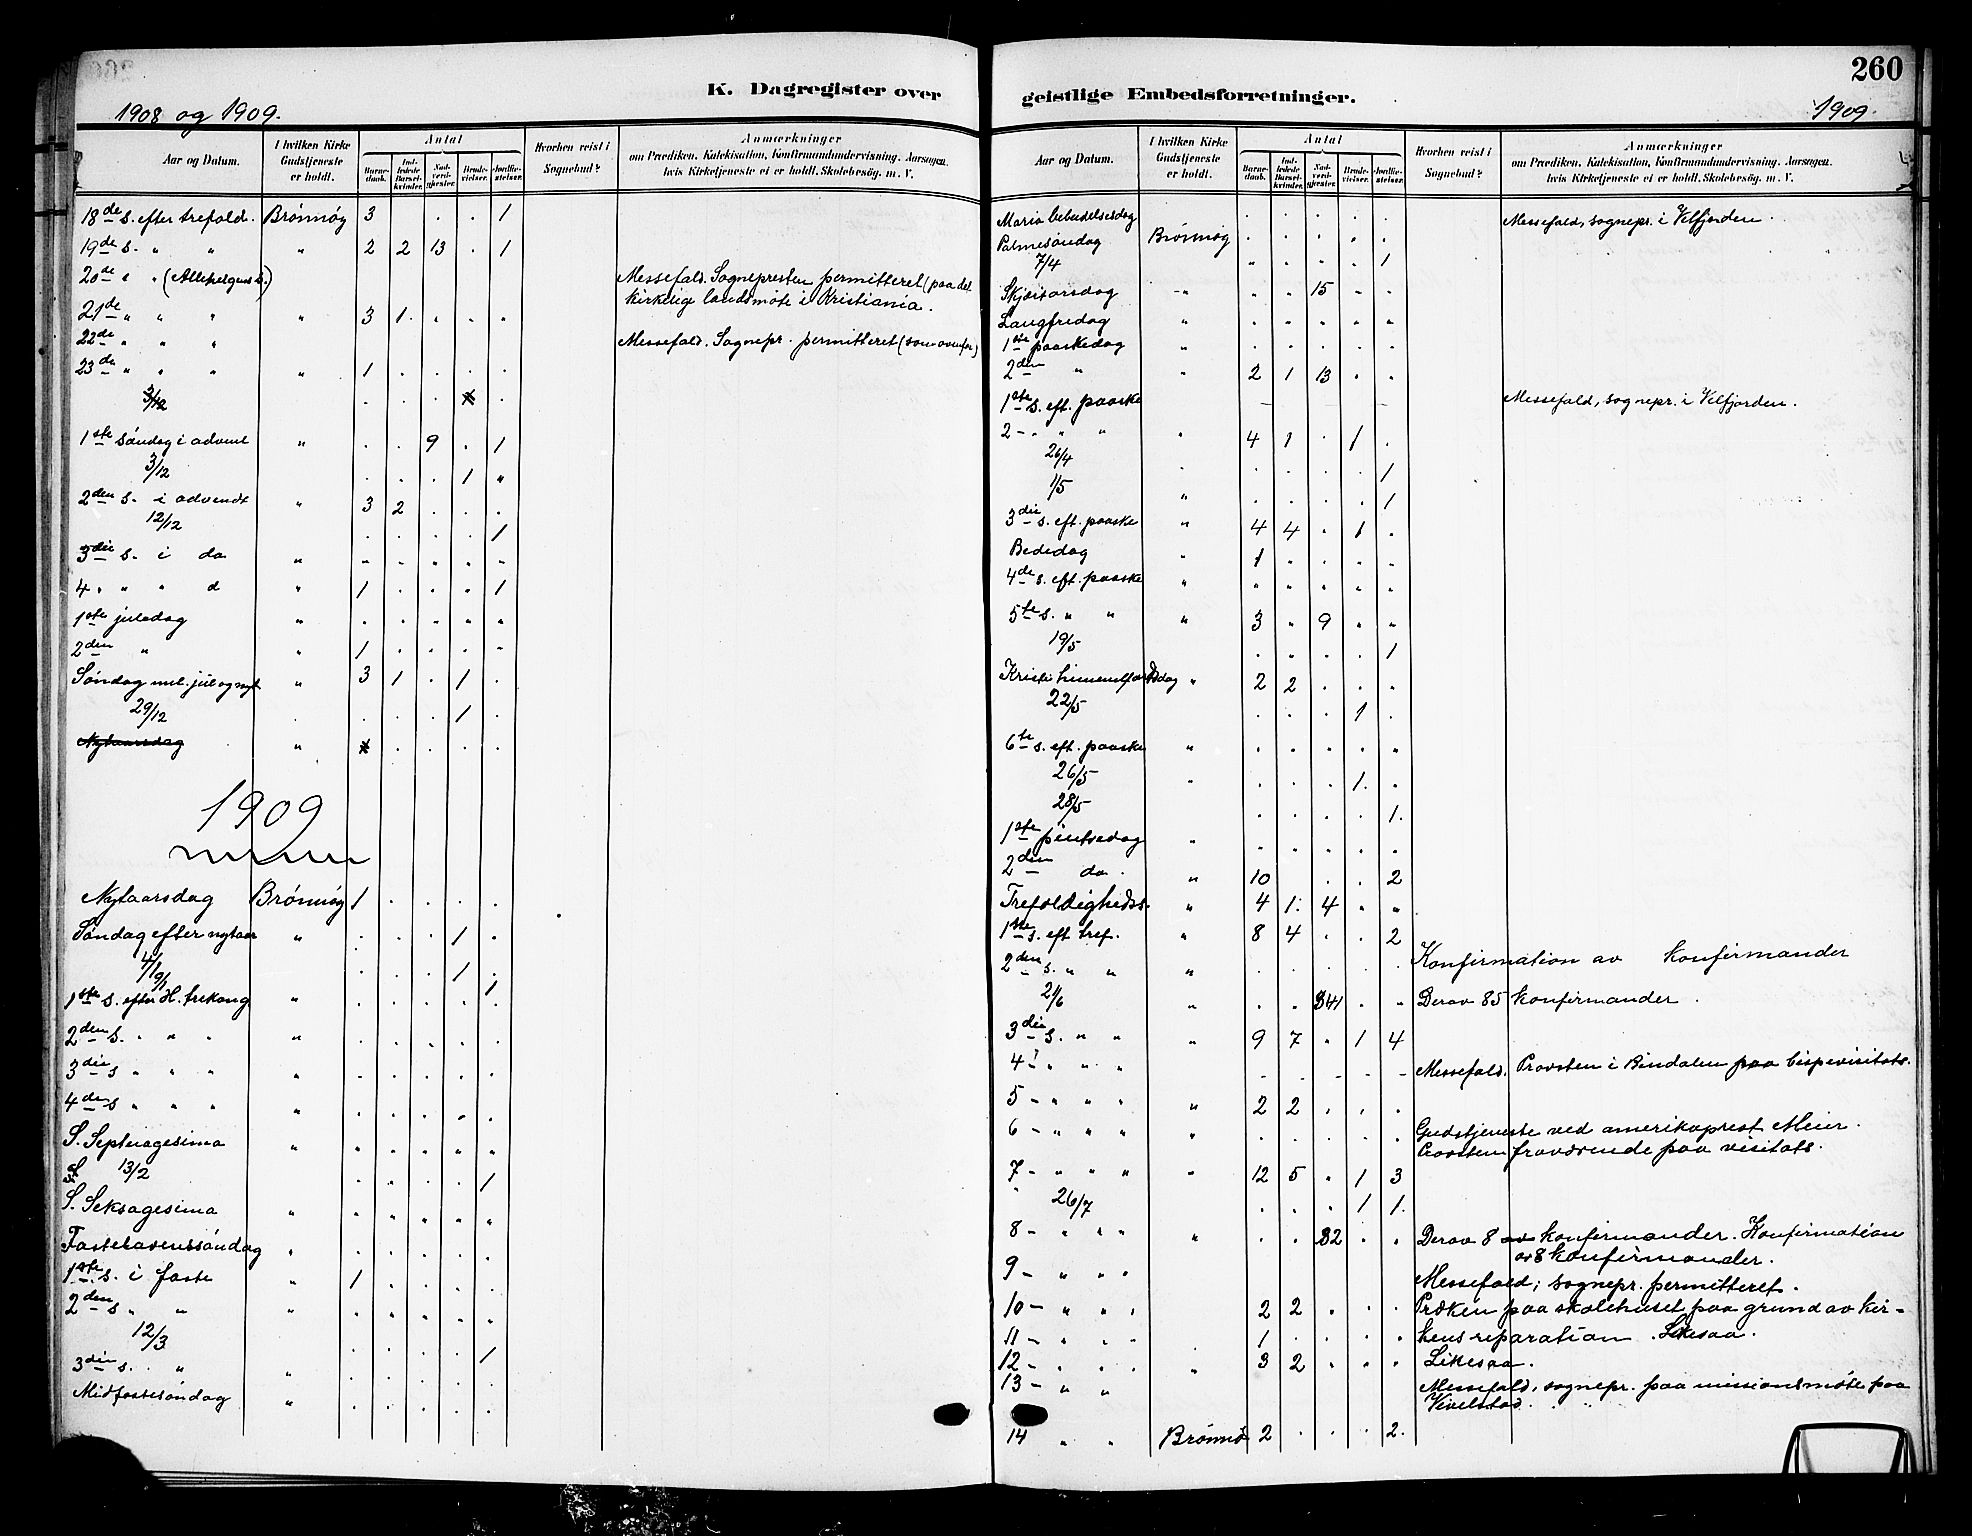 260
K. Dagregister over geistlige Embedsforretninger.
1908 og 1909.
1909.
Aar og Datum. | I hvilken Kirke Gudstjeneste er holdt. | Antal | Barnedaab. | Indledede Barselkvinder. | Nadverdgjester. | Brudevielser. | Jordfæstelser. | Hvorhen reist i Sognebud? | Anmærkninger om Prædiken, Katekisation, Konfirmandundervisning, Aarsagen, hvis Kirketjeneste ei er holdt, Skolebesøg, m. V.
18de s. efter trefold. Brönnöy 3 . . . 1
19de s. " " " 2 2 13 . 1
20de " " (Allehelgens d.) Messefald. Sognepresten permitteret (paa det
kirkelige landsmöte i Kristiania.
21de " " " " 3 1 . . .
22de " " " Messefald. Sognepr. permitteret (som ovenfor)
23de " " " " 1 . . . .
3/12
1ste söndag i advent " . . 9 . 1
3/12 . . . 1 "
2den s. i advendt " 3 2 . . .
12/12 . . . . 1
3die s. i do " " . . . .
4 " " " d " 1 . . . 1
1ste juledag " . . . . .
2den " " 1 . . . .
Söndag mel. jul og nyt " 3 1 . 1 .
29/12 . . . 1 .
Nytaarsdag "
1909
Nytaarsdag Brönnöy 1 . . . .
Söndag efter nytaar " . . . 1 .
4/1 . . . 1 .
9/1 1
1ste s. efter H. trekong. " . . . . .
2den s. " " " " . . . . .
3die s " " " " . . . . .
4de s " " " " . . . . .
S. Septuagesima " " . . . .
13/2 . . . . 1
S. Seksagesima " . . . . .
Fastelavenssöndag " . . . . .
1ste s. i faste " 1 . . . .
2den s " " " . . . . .
12/3 . . . . 1
3die s. " " . . . . .
Midfastesöndag " . . . . .
Aar og Datum. | I hvilken Kirke Gudstjeneste er holdt. | Antal | Barnedaab. | Indledede Barselkvinder. | Nadverdgjester. | Brudevielser. | Jordfæstelser. | Hvorhen reist i Sognebud? | Anmærkninger om Prædiken, Katekisation, Konfirmandundervisning, Aarsagen, hvis Kirketjeneste ei er holdt, Skolebesøg, m. V.
Maria bebudelsesdag . . . . . Messefald, sognepr. i Velfjorden.
Palmesöndag Brönnöy . . . . .
7/4 " . . . 1
Skjærtorsdag " " " 15 . .
Langfredag " . . . . .
1ste paaskedag " . . . . .
2den " " 2 1 13 . .
1ste s. eft. paaske Messefald, sognepr. i Velfjorden.
2 - " " " " 4 1 . 1 .
26/4 . . . . 1
1/5 " . . . . 1
3die s. eft. paaske " 4 4 . 1 .
Bededag " 1 . . . .
4de s. eft. paaske " . . . . .
5te s. " " " 3 " 9 " "
19/5 . . . . 1
Kristi himmelfartsdag " 2 2 . . .
22/5 . . . 1 .
6te s. eft. paaske " . . . . .
26/5 " . . . 1 .
28/5 . . . . 1.
1ste pintsedag " . . . . .
2den do. " 10 . . . 2
Trefoldighedss. " 4 1. 4 " "
1ste s. eft tref. " 8 4 . . 2
2den s. " " " . . . . . Konfirmation av konfirmander
2/6 " . . . " Derav 85 konfirmander.
3die s. " " " 9 7 " 1 4
4 - " " " - - - - - Messefald. Provsten i Bindalen paa bispevisitats.
5 - " " " " 2 2 . . .
6 - " " " " . . . . . Gudstjeneste ved amerikaprest Meier.
Provsten fraværende paa visitats.
7 - " " " " 12 5 " 1 3
26/7 . . . 1 1.
8 - " " " " . . 32 . . Derav 8 konfirmander. Konfirmation
av 8 konfirmander.
9 - " " " Messefald; sognepr. permitteret.
10 - " " " 2 2 . . . Præken paa skolehuset paa grund av kir-
kens reparation. Likesaa.
11 - " . . 1 . . . "
12 - " . . " 3 2 " " " Likesaa.
13 - " " Messefald, sognepr. paa missionsmöte paa
Vivelstad.
14 " " Brönnö 2 . . . 2.